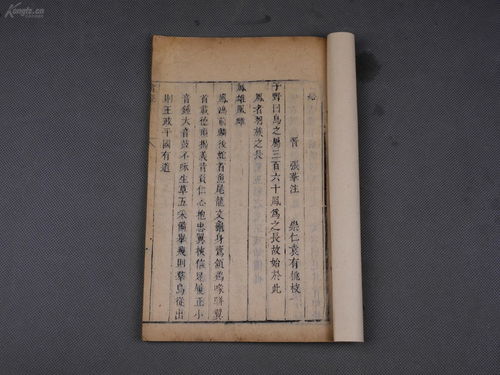 Kongfz.cn
晉 張華注 崇仁袁有僊校
子野曰鳥之屬三百六十鳳為之長故始於此
鳳者羽族之長
鳳雄凰雌
鳳鴻前麟後蛇首魚尾龍文龜身鷰頷鷄喙駢翼
首載德頂揭義背負仁心抱忠翼挾信足履正小
音鍾大音鼓不啄生草五采備舉飛則羣鳥從出
則王政平國有道